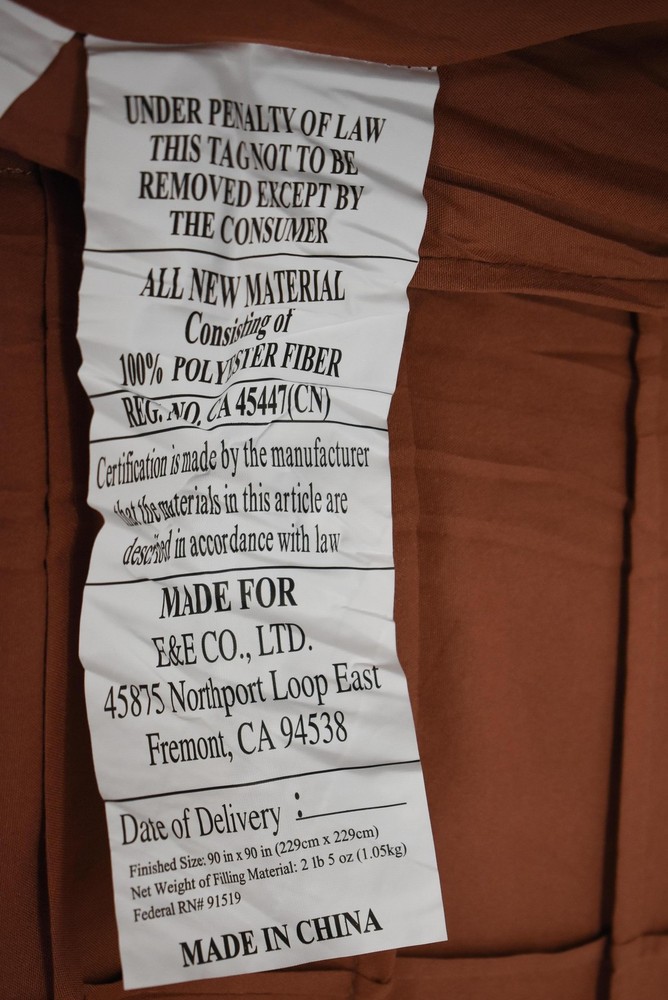 UNDER PENALTY OF LAW
THIS TAG NOT TO BE
REMOVED EXCEPT BY
THE CONSUMER
ALL NEW MATERIAL
Consisting of
100% POLYESTER FIBER
REG. NO. CA 45447(CN)
Certification is made by the manufacturer
that the materials in this article are
described in accordance with law
MADE FOR
E&E CO., LTD.
45875 Northport Loop East
Fremont, CA 94538
Date of Delivery :
Finished Size: 90 in x 90 in (229cm x 229cm)
Net Weight of Filling Material: 2 lb 5 oz (1.05kg)
Federal RN# 91519
MADE IN CHINA